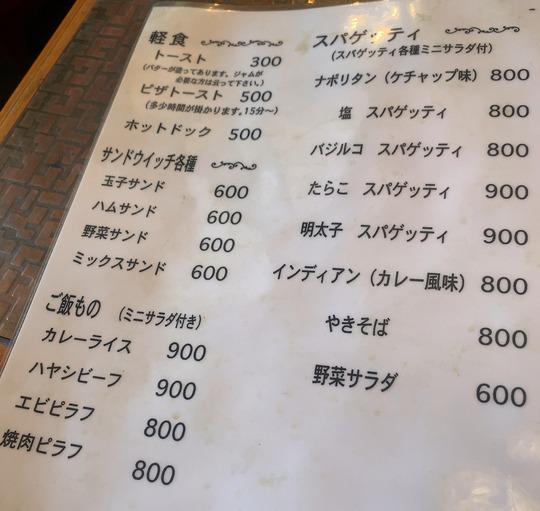 軽食
トースト 300
(バターが塗ってあります。ジャムが
必要な方は云って下さい。)
ピザトースト 500
(多少時間が掛かります。15分〜)
ホットドック 500
サンドウイッチ各種
玉子サンド 600
ハムサンド 600
野菜サンド 600
ミックスサンド 600
ご飯もの (ミニサラダ付き)
カレーライス 900
ハヤシビーフ 900
エビピラフ 800
焼肉ピラフ 800
スパゲッティ
(スパゲッティ各種ミニサラダ付)
ナポリタン(ケチャップ味) 800
塩 スパゲッティ 800
バジルコ スパゲッティ 800
たらこ スパゲッティ 900
明太子 スパゲッティ 900
インディアン(カレー風味) 800
やきそば 800
野菜サラダ 600